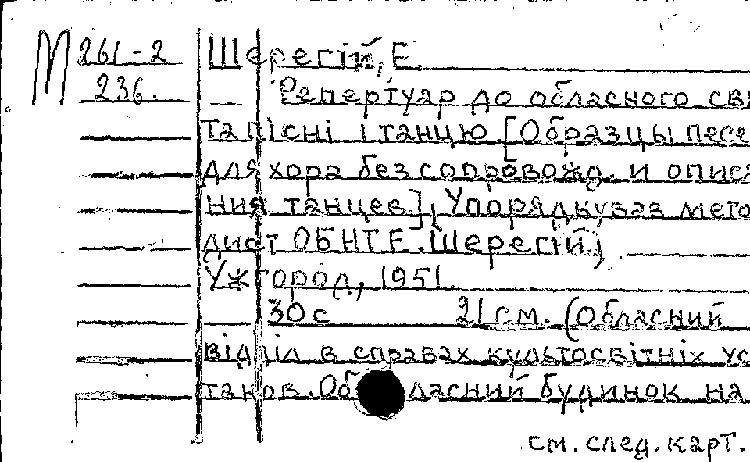 М 261-2 Шерегій, Е.
236. Репертуар до обласного свя
та пісні і танцю [Образцы песе
для хора без сопровожд. и описа
ния танцев], Упорядкував мето
дист ОБНТ Е. Шерегій,
Ужгород, 1951.
30 с 21 см. (Обласний
відділ в справах культосвітніх ус
танов. Обласний будинок на
см. след. карт.